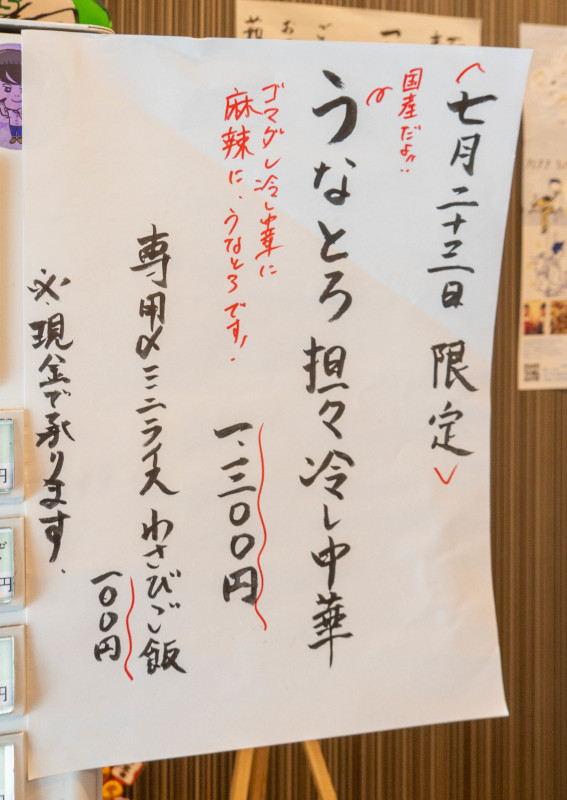 七月二十三日 限定
国産だよ!!
うなとろ担々冷し中華
ゴマダレ冷し中華に
麻辣に、うなとろです!
一、三〇〇円
専用〆ミニライス わさびご飯
一〇〇円
※現金で承ります。
円
円
円